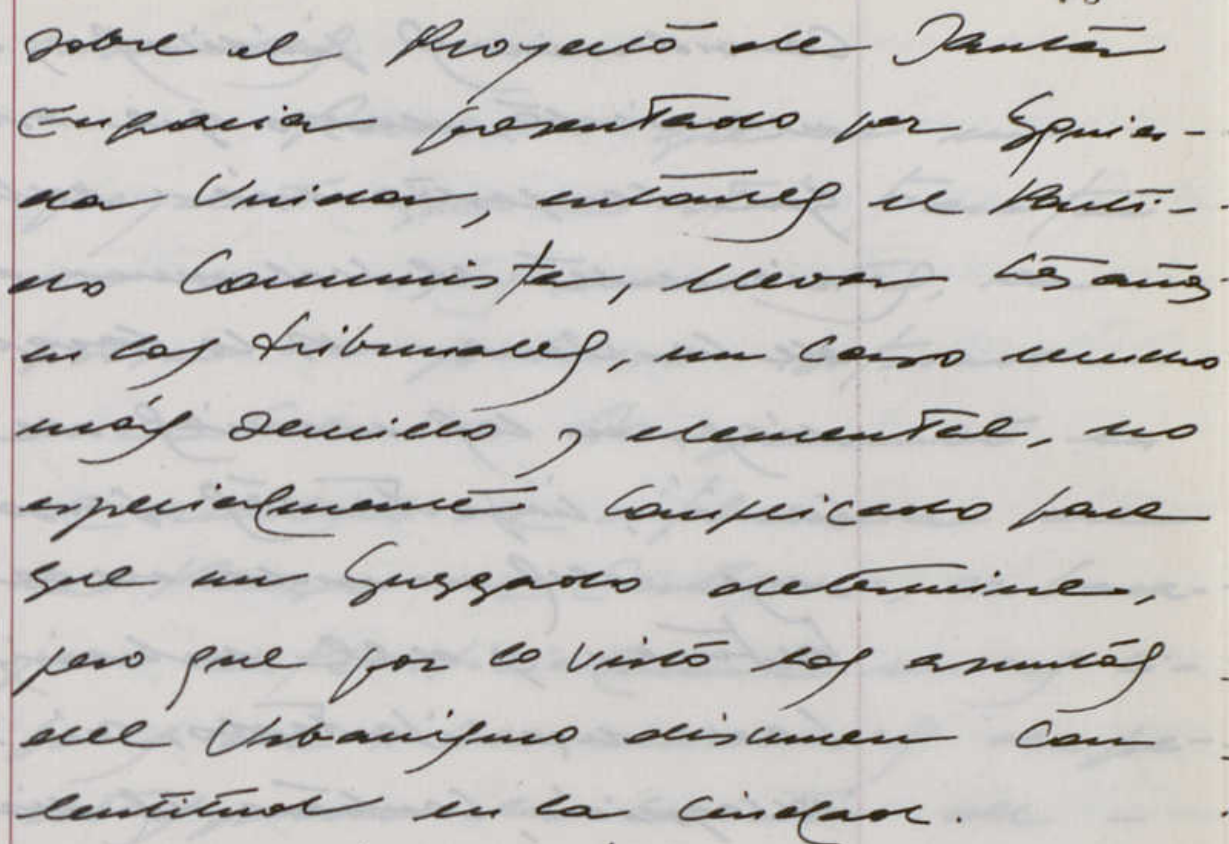 sobre el Proyecto de Santa
Engracia presentado por Izquier-
da Unida, entonces el Parti-
do Comunista, llevar tres años
en los tribunales, un caso mucho
más sencillo y elemental, no
especialmente complicado para
que un Juzgado determine,
pero que por lo visto los asuntos
del Urbanismo discurren con
lentitud en la Ciudad.